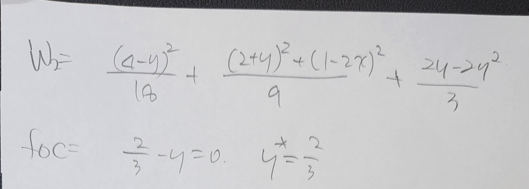 W₂= (4-y)²/18 + ((2+y)²+(1-2x)²)/9 + (2y-2y²)/3
foc= 2/3 -y=0. y*=2/3